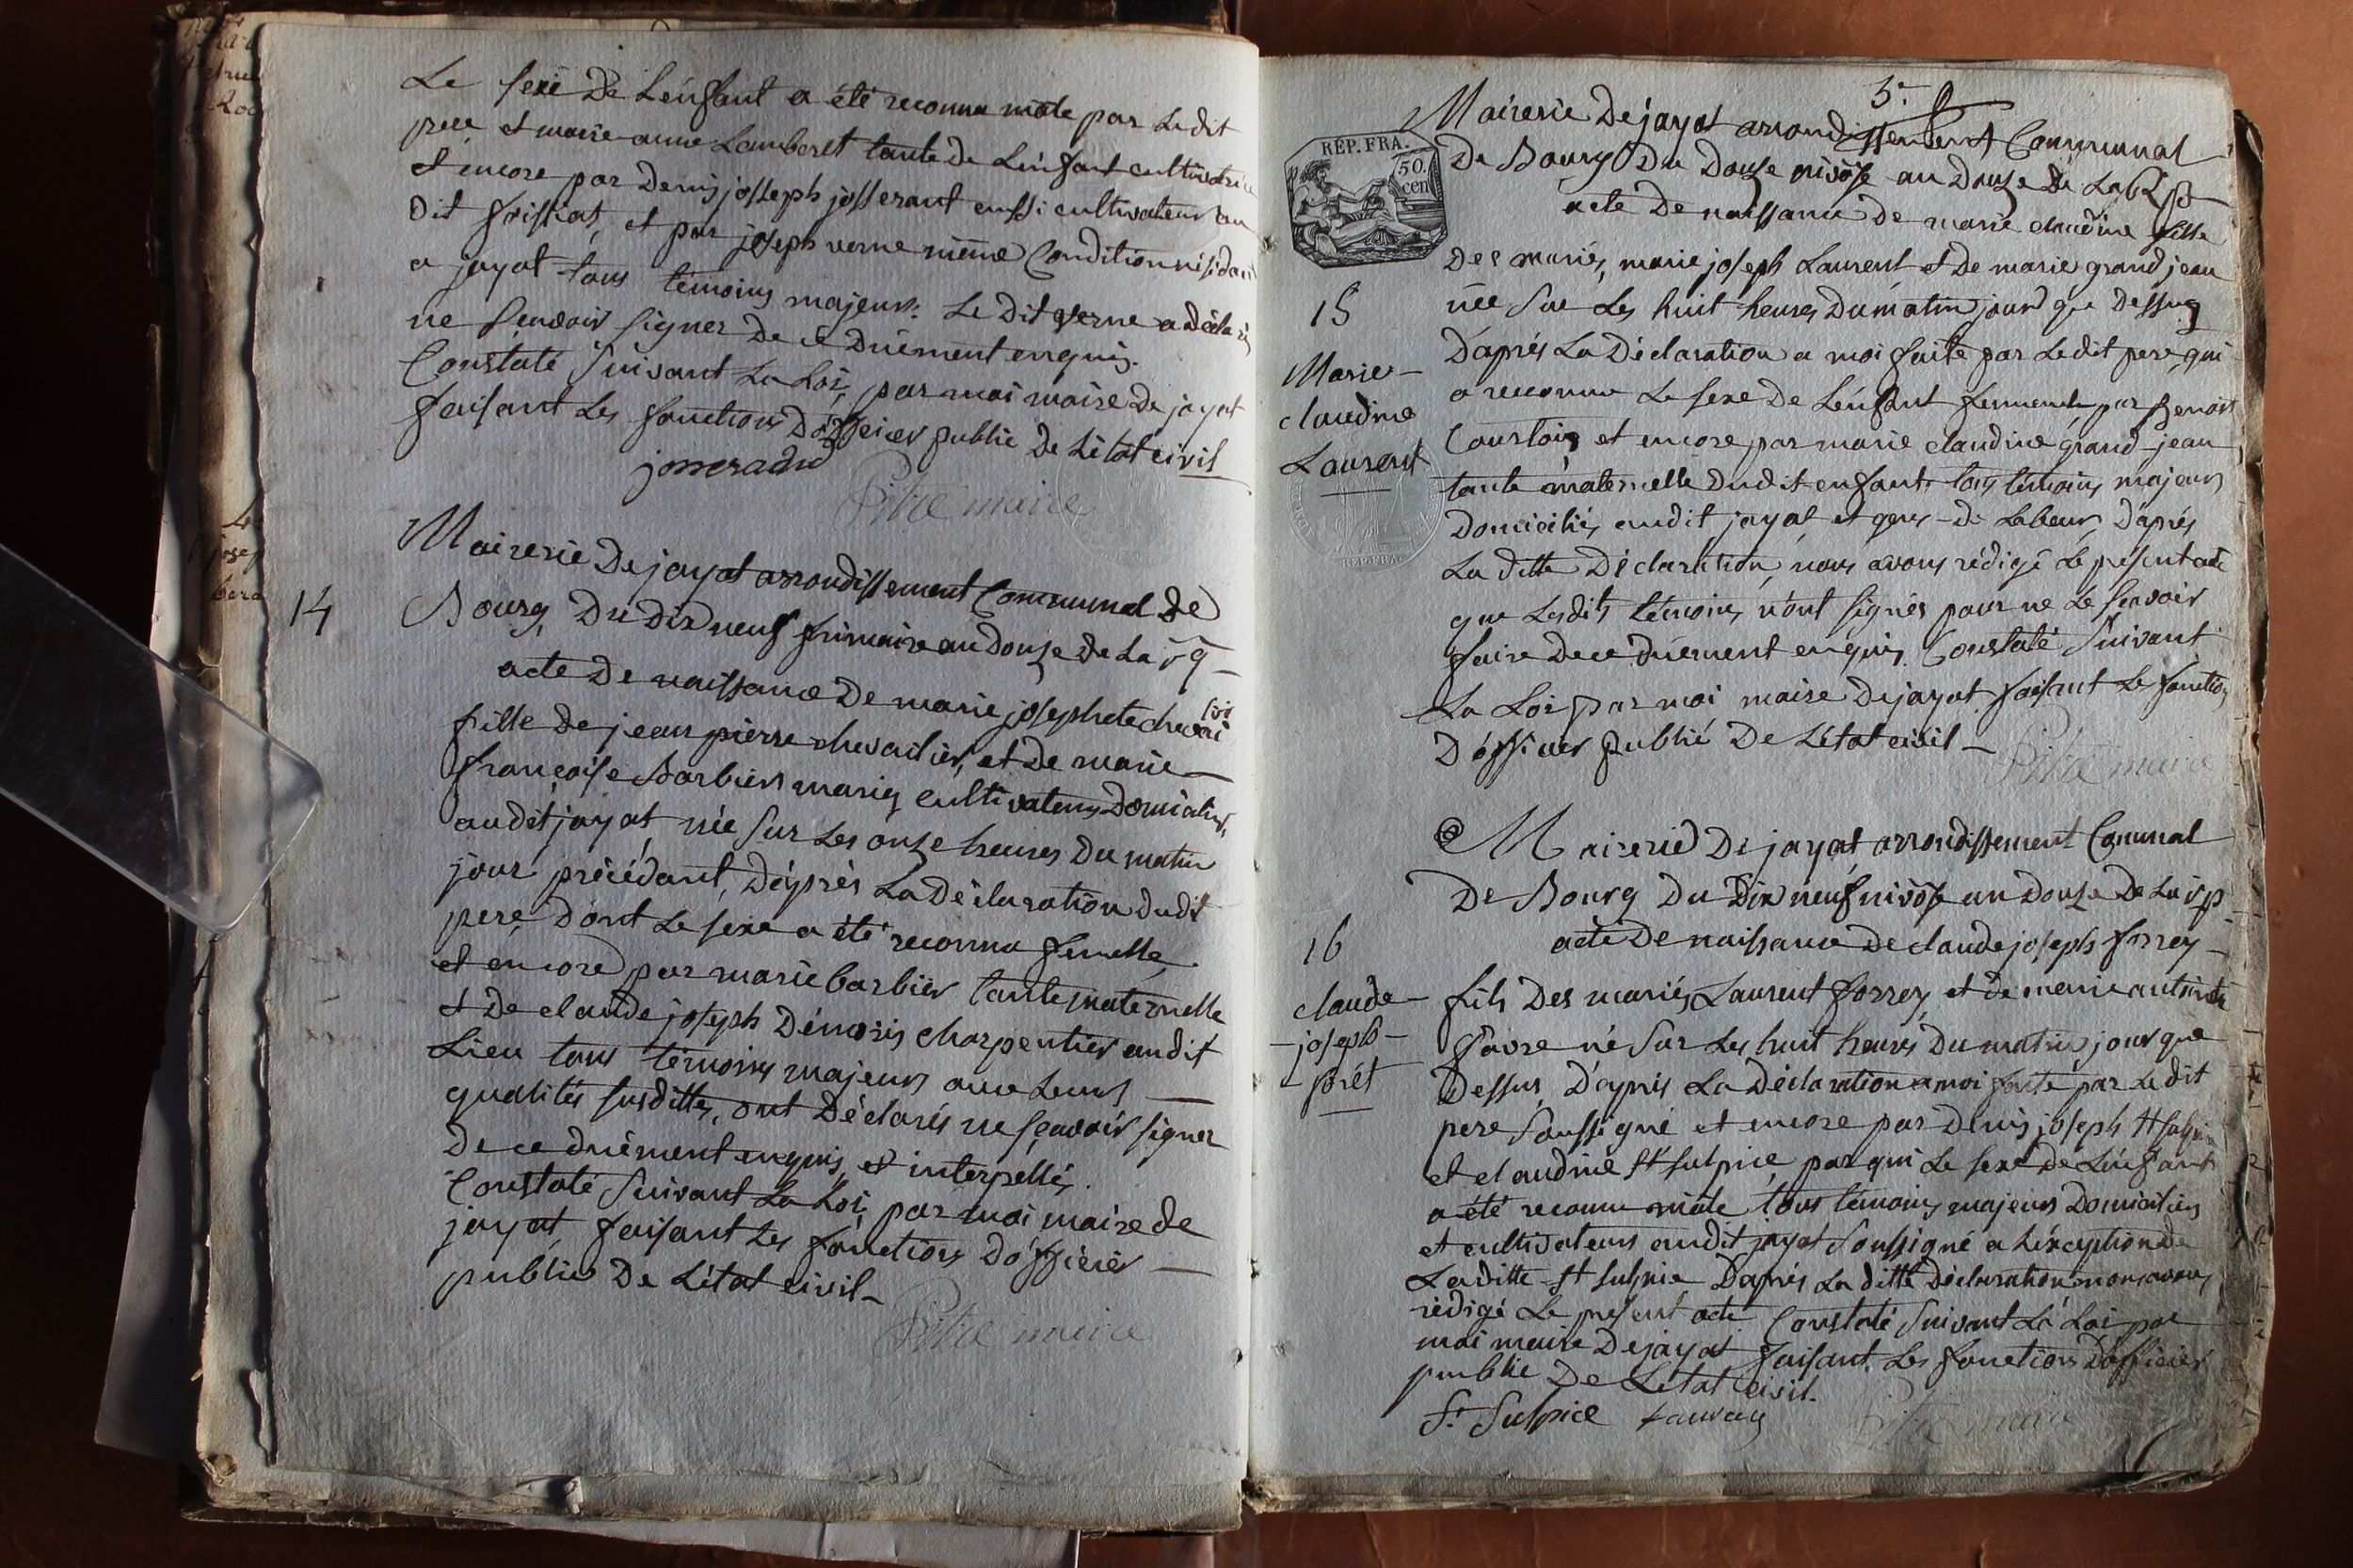 Le sexe de L'énfant a été reconnu mâle par Ledit
pere et marie anne Lamberet tante de L'énfant cultivatrice
et encore par Denis josseph josserant aussi cultivateur au
dit foissiat, et par joseph verne même Condition résidant
a jayat tous témoins majeurs. Le dit verne a déclaré
ne sçavoir signer de ce duement enquis.
Constaté Suivant La Loi, par moi maire de jayat
faisant Les fonctions D'officier public de L'état civil
josserand
Pitre maire
14
Mairerie De jayat arrondissement Communal de
Bourg, Du Dix neuf frimaire an douze de La
acte De naissance De marie josephete chevai
fille de jean pierre chevailier, et De marie
françoise Barbier mariés cultivateurs Domiciliés
audit jayat, née Sur Les onze heures Du matin
jour précédant, D'après La Déclaration dudit
pere, dont Le sexe a été reconnu femelle,
et encore par marie barbier tante maternelle
et De claude joseph charpentier audit
Lieu tous témoins majeurs avec Leurs
qualités susdittes, ont Déclarés ne sçavoir signer
De ce duément enquis, et interpellés.
Constaté Suivant La Loi, par moi maire de
jayat, faisant Les fonctions D'officier
public De L'état civil
Pitre maire
5e
Mairerie De jayat arrondissement Communal
RÉP. FRA.
50. cen
De Bourg Du Douze nivôse an Douze de La
acte De naissance de marie claudine fille
Des mariés, marie joseph Laurent et De marie grandjean
15
née Sur Les huit heures Du matin jour que Dessus
D'aprés La Déclaration a moi faite par Ledit pere, qui
Marie
a reconnu Le sexe De L'énfant femmelle par Benoit
claudine
Courtois, et encore par marie claudine grand-jean
Laurent
tante maternelle Dudit enfant, tous témoins majeurs
Domiciliés audit jayat, et gens de Labeur, D'aprés
La ditte Déclaration, nous avons rédigé Le présent acte
que Lesdits témoins n'ont signés pour ne Le sçavoir
faire De ce duement enquis. Constaté Suivant
La Loi par moi maire De jayat faisant Le fonction
D'officier public De L'état civil
Pitre maire
Mairerie De jayat arrondissement Comunal
De Bourg Du Dix neuf nivôse an Douze De La
16
acte De naissance De claude joseph forrey
claude
fils Des mariés, Laurent forrey, et de marie antoinete
joseph
favre né Sur Les huit heures Du matin jour que
Dessus, D'aprés La Déclaration a moi faite par Ledit
pere Soussigné et encore par Denis joseph St Sulpice
et claudine St sulpice, par qui Le sexe de L'énfant
a été reconnu mâle tous témoins majeurs Domiciliés
et cultivateurs audit jayat Soussigné a L'éxception de
Laditte St Sulpice D'aprés La ditte Déclaration nous avons
rédigé Le présent acte Constaté Suivant La Loi par
moi maire De jayat faisant Les fonctions D'officier
public De L'état civil.
St Sulpice
Pitre maire